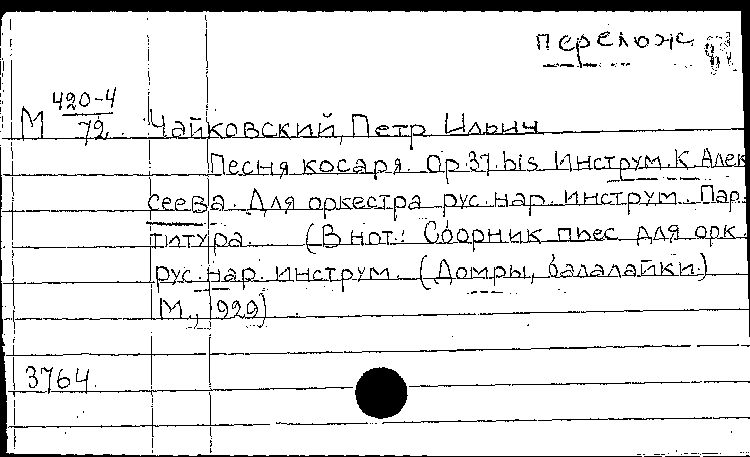 перелож
М 420-4/72. Чайковский, Петр Ильич
Песня косаря. Op.37.bis Инструм. К. Алек
сеева. Для оркестра рус. нар. инструм. Пар-
титура. (В нот.: Сборник пьес для орк.
рус. нар. инструм. (Домры, балалайки.)
М., 1929)
3764.